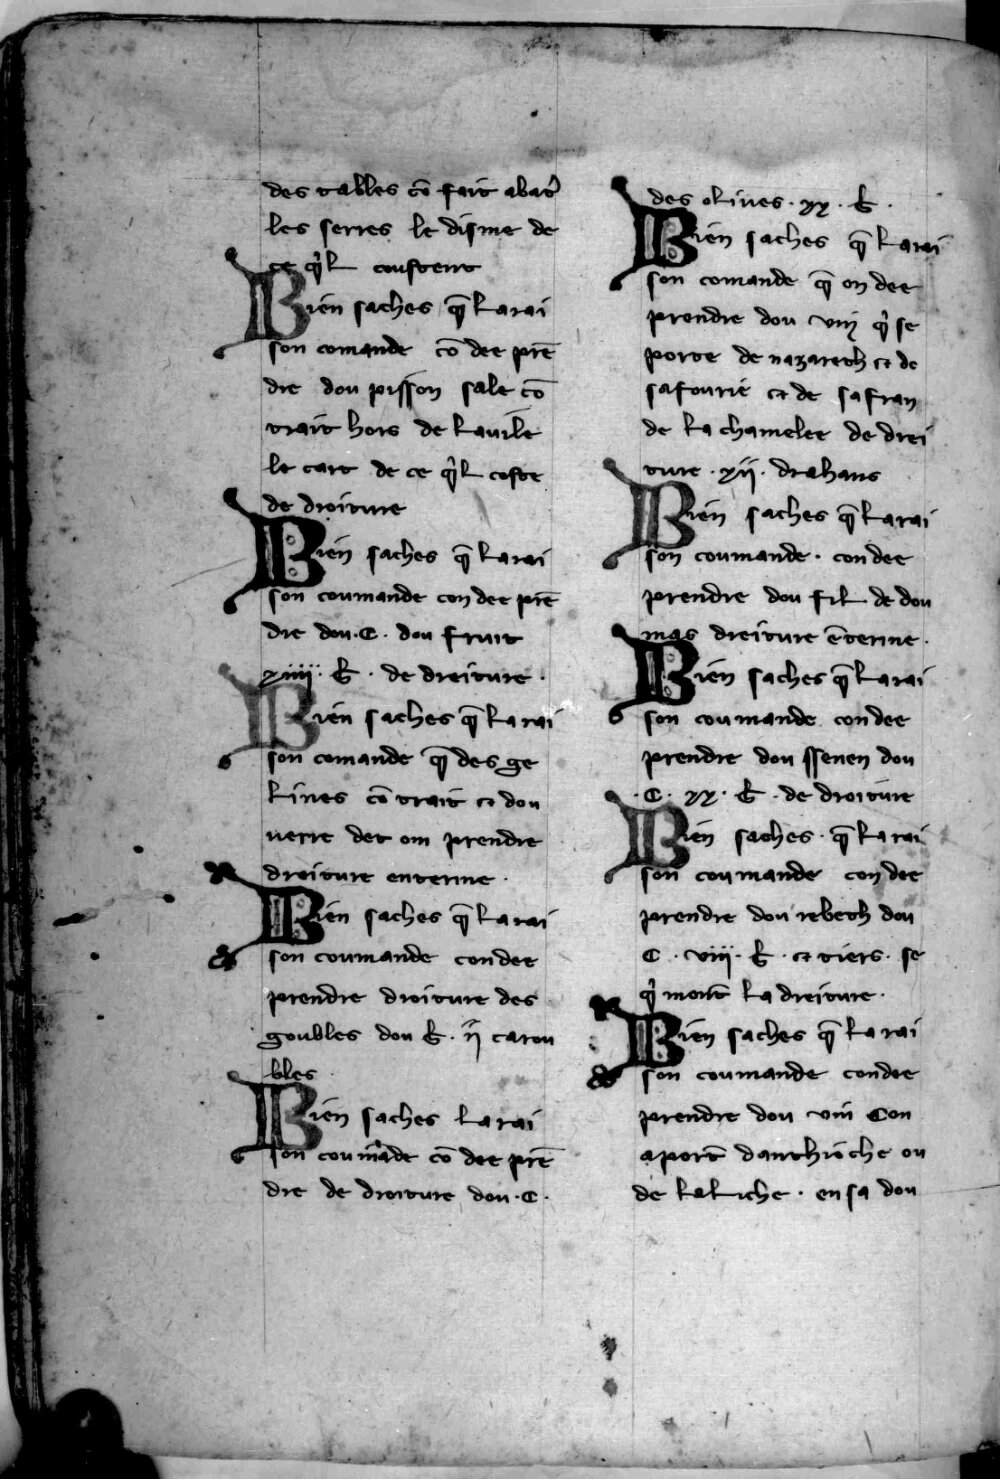 des tables cō fait abatr̃
les serres le disme de
ce q̉l coustent
Bien saches q̄ la rai
son comande cō dee prē
dre dou pisson sale cō
trait hors de lauile
le cart de ce q̉l coste
de droiture
Bien saches q̄ la rai
son coumande con dee prē
dre dou · C · dou fruit
xiiii · k̃ · de dreiture ·
Bien saches q̄ la rai
son comande q̄ des ge
lines cō trait et dou
uerre det om prendre
droiture enterine ·
Bien saches q̄ la rai
son coumande con dee
prendre droiture des
goubles dou k̃ · ii carou
bles
Bien saches la rai
son coumāde cō dee prē
dre de droiture dou · C ·
des oliues · xx · k̃ ·
Bien saches q̄ la rai
son comande q̄ on dee
prendre dou vin q̉ se
porte de nazareth et de
safourie et de safran
de la chamelee de drei
ture · xii · drahans
Bien saches q̄ la rai
son coumande · con dee
prendre dou fil de dou
mas dreiture ēterine ·
Bien saches q̄ la rai
son coumande con dee
prendre dou ssenen dou
· C · xx · k̃ · de droiture
Bien saches · q̄ la rai
son coumande con dee
prendre dou rebech dou
C · viii · k̃ · et tiers · se
q̉ mont la dreiture ·
Bien saches q̄ la rai
son coumande con dee
prendre dou vin Con
aport danthioche ou
de laliche · en sa dou